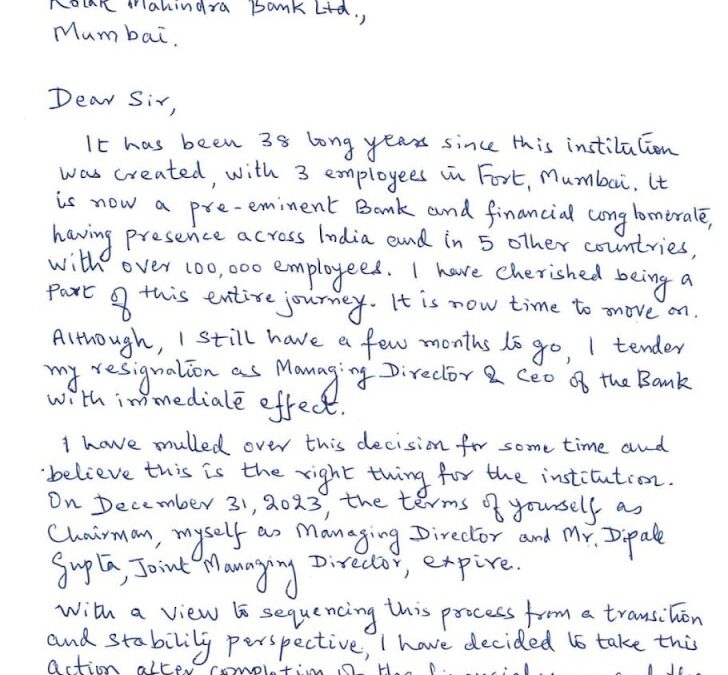 Kotak Mahindra Bank Ltd.,
Mumbai.
Dear Sir,
It has been 38 long years since this institution
was created, with 3 employees in Fort, Mumbai. It
is now a pre-eminent Bank and financial conglomerate,
having presence across India and in 5 other countries,
with over 100,000 employees. I have cherished being a
part of this entire journey. It is now time to move on.
Although, I still have a few months to go, I tender
my resignation as Managing Director & CEO of the Bank
with immediate effect.
I have mulled over this decision for some time and
believe this is the right thing for the institution.
On December 31, 2023, the terms of yourself as
Chairman, myself as Managing Director and Mr. Dipak
Gupta, Joint Managing Director, expire.
With a view to sequencing this process from a transition
and stability perspective, I have decided to take this
action after completion of the financial year and the